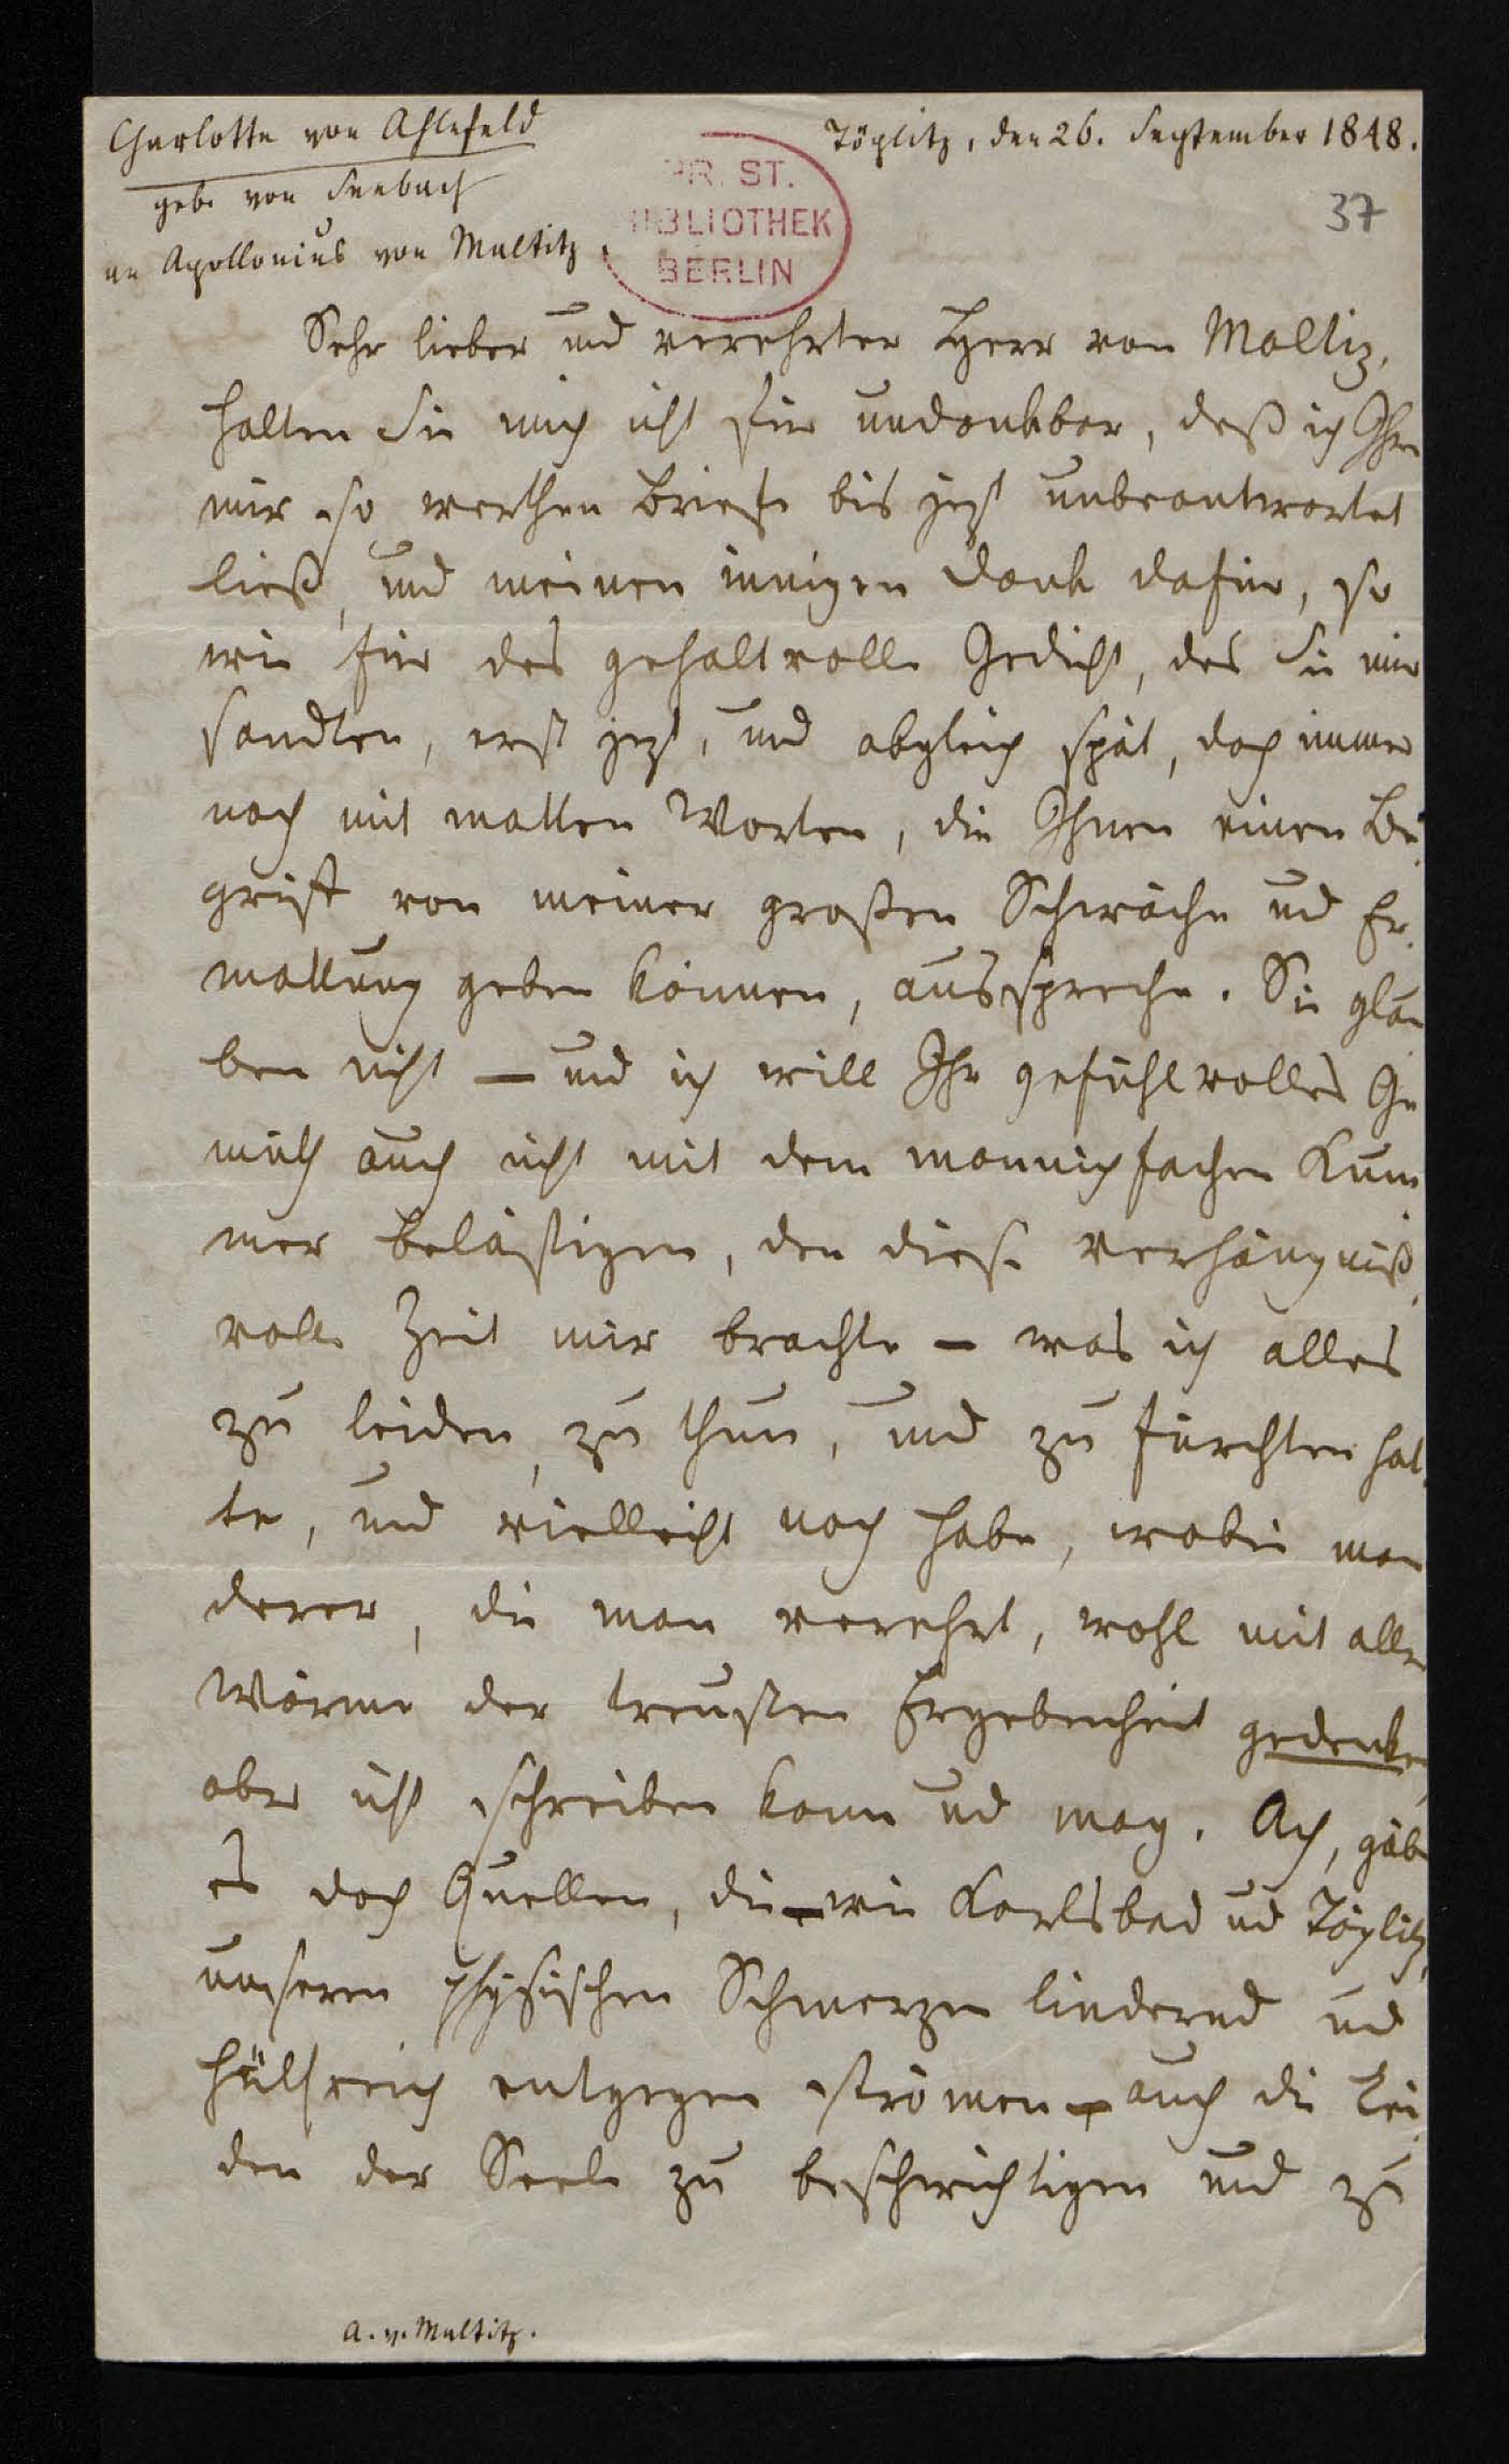 Charlotte von Ahlefeld
geb. von Seebach
an Apollonius von Maltitz.
Töplitz, den 26. September 1848.
PR. ST.
BIBLIOTHEK
BERLIN
37
Sehr lieber und verehrter Herr von Maltiz,
halten Sie mich nicht für undankbar, daß ich Ihre
mir so werthen Briefe bis jezt unbeantwortet
ließ, und meinen innigen Dank dafür, so
wie für das gehaltvolle Gedicht, das Sie mir
sandten, erst jezt, und obgleich spät, doch immer
noch mit matten Worten, die Ihnen einen Be-
griff von meiner großen Schwäche und Er-
mattung geben können, ausspreche. Sie glau-
ben nicht – und ich will Ihr gefühlvolles Ge-
müth auch nicht mit dem mannichfachen Kum-
mer belästigen, den diese verhängniß-
volle Zeit mir brachte – was ich alles
zu leiden, zu thun, und zu fürchten hat-
te, und vielleicht noch habe, wobei man
derer, die man verehrt, wohl mit aller
Wärme der treusten Ergebenheit gedenken,
aber nicht schreiben kann und mag. Ach, gäbe
es doch Quellen, die – wie Karlsbad und Töplitz,
unseren physischen Schmerzen lindernd und
hülfreich entgegen strömen – auch die Lei-
den der Seele zu beschwichtigen und zu
A. v. Maltitz.